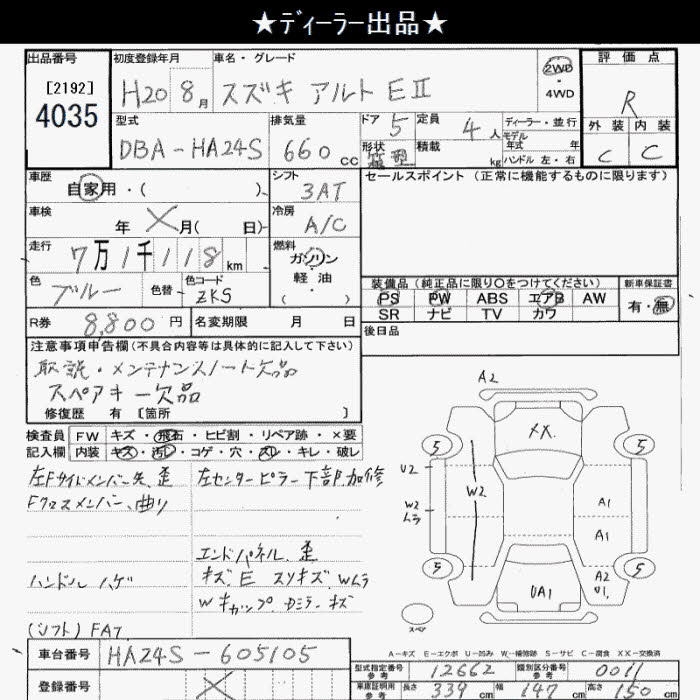 ★ディーラー出品★
出品番号
[2192]
4035
初度登録年月
H20 8月
車名・グレード
スズキ アルト EⅡ
2WD
・
4WD
評価点
R
外装 内装
C C
型式
DBA-HA24S
排気量
660 cc
ドア 5
形状
定員 4人
積載 kg
ディーラー・並行
モデル年式 年
ハンドル 左・右
車歴
自家用・( )
シフト
3AT
セールスポイント (正常に機能するものに限ります)
車検
年 ×月( 日)
冷房
A/C
走行
7万1千118 km
燃料
ガソリン
・
軽油
( )
色
ブルー
色替
色コード
ZKS
装備品 (純正品に限り○をつけてください)
新車保証書
PS PW ABS エアB AW
有・無
SR ナビ TV カワ
R券 8,800円
名変期限 月 日
後日品
注意事項申告欄 (不具合内容等は具体的に記入して下さい)
取説・メンテナンスノート欠品
スペアキー欠品
修復歴 有 [箇所 ]
検査員記入欄
FW キズ・飛石・ヒビ割・リペア跡・×要
内装 キズ・汚レ・コゲ・穴・スレ・キレ・破レ
左Fサイドメンバー先、歪
Fクロスメンバー、曲り
左センターピラー下部、加修
エンドパネル 歪
ハンドル ハゲ
キズ、E スリキズ、Wムラ
Wキャップ、Dミラー、キズ
(シフト) FAT
A2
XX
5 5
U2
W2
W2
ムラ
A1
A1
5 5
A2
U1
UA1
スペア
A-キズ E-エクボ U-凹み W-補修跡 S-サビ C-腐食 XX-交換済
車台番号 HA24S-605105
登録番号 ×
型式指定番号 参考 12662
類別区分番号 参考 0011
車庫証明用 参考 長さ 339 cm 幅 147 cm 高さ 150 cm